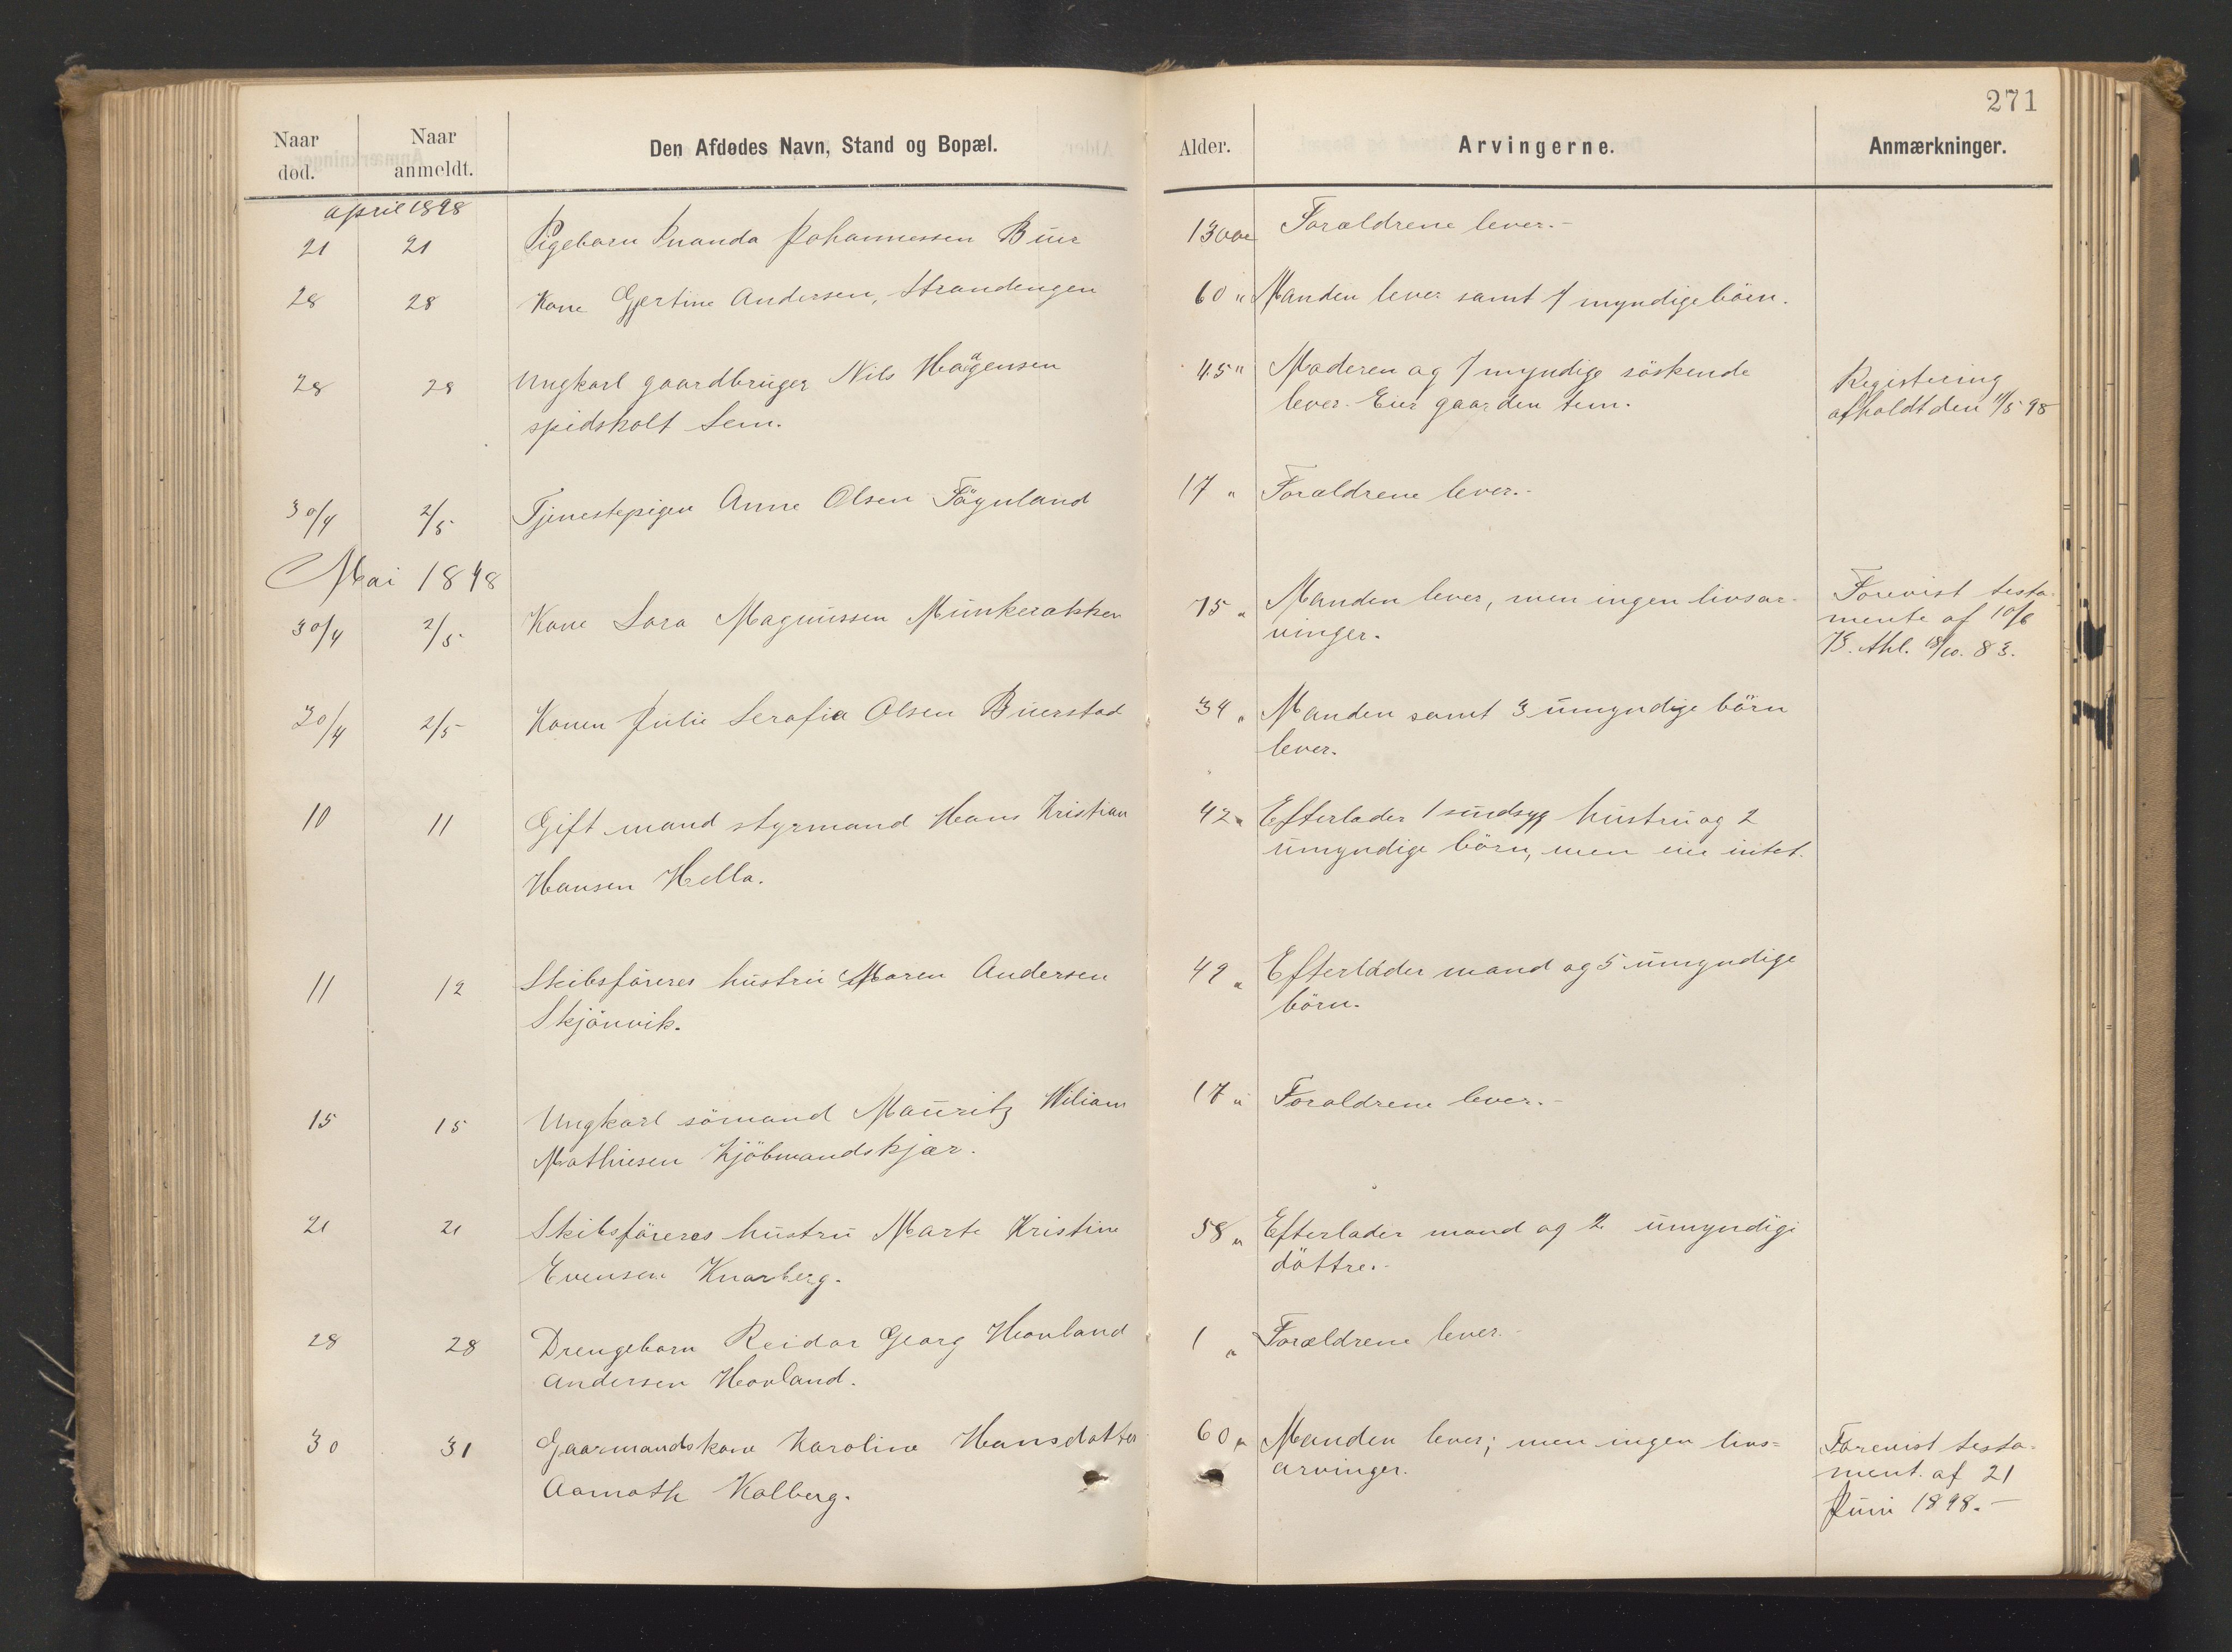 271
Naar død.
Naar anmeldt.
Den Afdødes Navn, Stand og Bopæl.
Alder.
Arvingerne.
Anmærkninger.
april 1898
21 21 Pigebarn Johannessen Buer 13 Forældrene lever.-
28 28 Kone Gjertine Andersen, Strandengen 60 " Manden lever samt 7 myndige börn.
28 28 Ungkarl gaardbruger Nils Haagensen 45 " Moderen og 7 myndige söskende Registrering
spidsholt Sem. lever. Eier gaarden tem. afholdt den 11/5 98
30/4 2/5 Tjenestepigen Anne Olsen Fögnland 17 " Forældrene lever.-
Mai 1898
30/4 2/5 Kone Lara Magnussen Munkerakken 75 " Manden lever, men ingen livsar- Forevist testa-
vinger. mente af 10/6
73. thl. 18/10. 83.
30/4 2/5 Konen Julie Serafia Olsen Buerstad 34 " Manden samt 3 umyndige börn
lever.
10 11 Gift mand styrmand Hans Kristian 42 " Efterlader 1 sindsyg hustru og 2
Hansen Hella. umyndige börn, men eier intet.
11 12 Skibsföreres hustru Maren Andersen 49 " Efterlader mand og 5 umyndige
Skjönvik. börn.
15 15 Ungkarl sömand Mauritz Wiliam 17 " Forældrene lever.-
Mathiesen Kjöbmandskjær.
21 21 Skibsföreres hustru Marte Kristine 58 " Efterlader mand og 2 umyndige
Evensen Knarberg. döttre.-
28 28 Drengebarn Reidar Georg Hovland 1 " Forældrene lever.-
Andersen Hovland.
30 31 Gaarmandskone Karoline Hansdatter 60 " Manden lever; men ingen livs= Forevist testa-
Aamoth Kolberg. arvinger. ment. af 21
Juni 1898.-